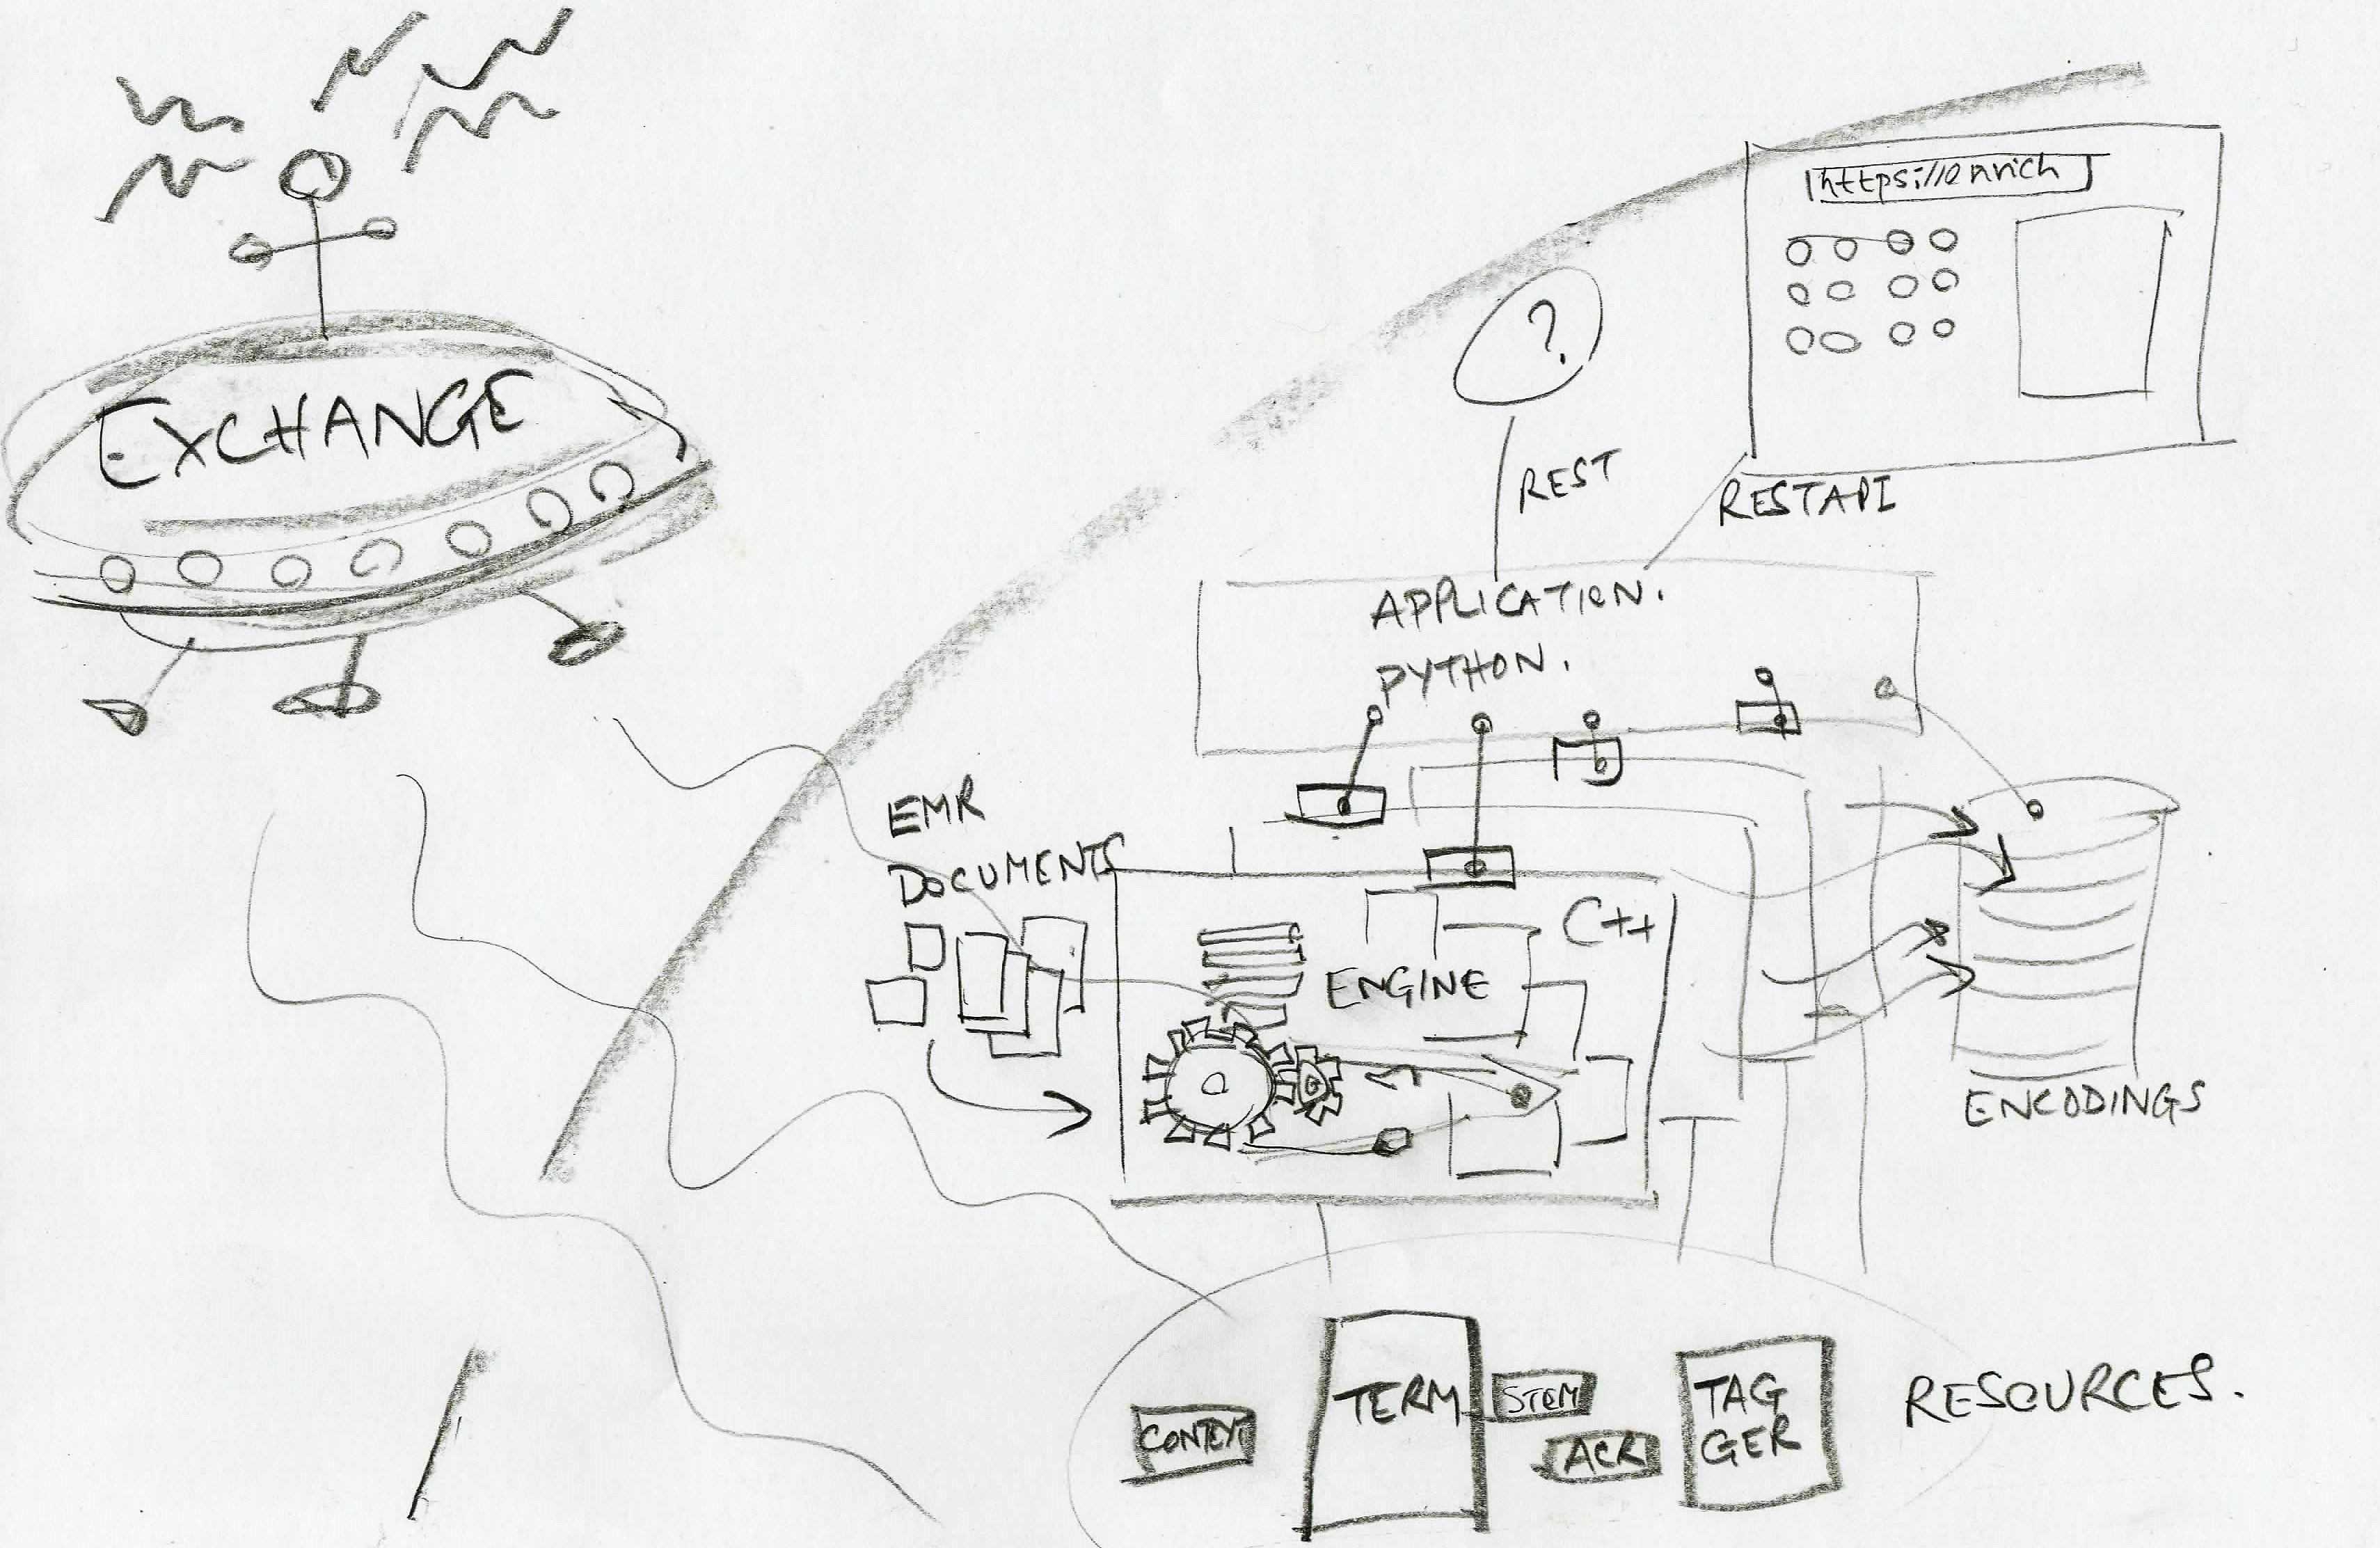 EXCHANGE
https://enrich
?
REST
RESTAPI
APPLICATION.
PYTHON.
EMR
DOCUMENTS
C++
ENGINE
ENCODINGS
CONTEXT
TERM
STEM
ACR
TAG
GER
RESOURCES.